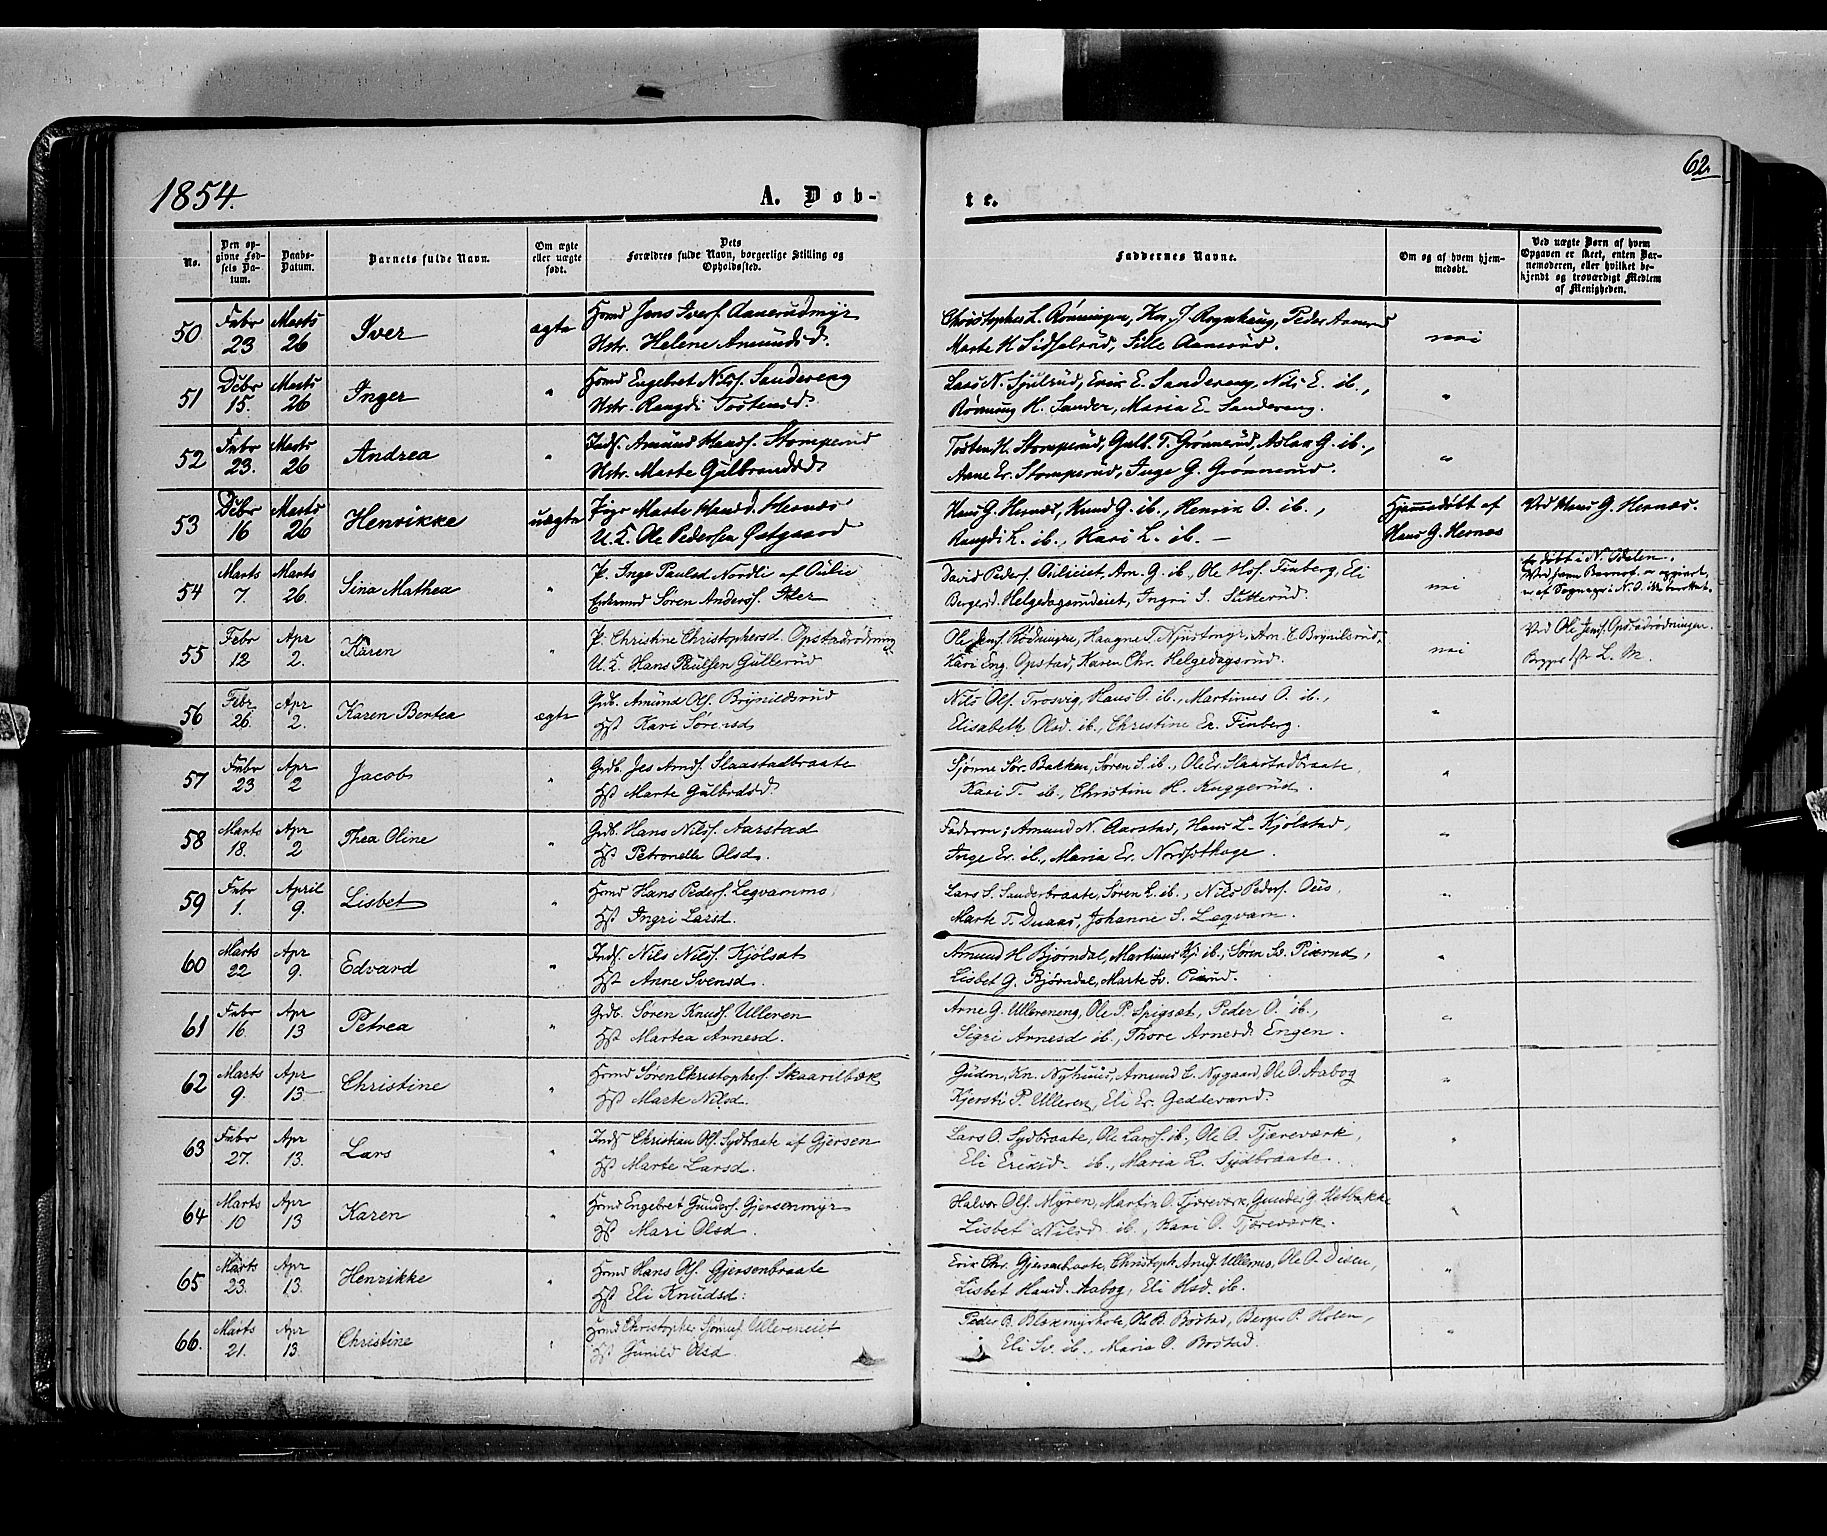 1854.
A. Dob-
te.
62.
No.
Den op-
givne Fød-
sels Da-
tum.
Daabs-
Datum.
Barnets fulde Navn.
Om ægte
eller uægte
født.
Dets
Forældres fulde Navn, borgerlige Stilling og
Opholdssted.
Faddernes Navne.
Om og af hvem hjem-
medøbt.
Ved uægte Børn af hvem
Opgaven er skeet, enten Bar-
nemoderen, eller hvilket be-
kjendt og troværdigt Medlem
af Menigheden.
50 Febr 23 Marts 26 Iver ægte
Hmd Jens Iversf. Aanerudmyr
Hstr. Helene Amundsd.
Christopher L. Rønningen, Peder Aanerud
Marte H. Sidselrud, Sille Aanerud.
nei
51 Debr 15. Marts 26 Inger "
Hmd Engebret Nilsf. Sandereng
Hstr. Rangdi Tostensd.
Lars N. Sjulrud, Erik E. Sandereng, Nils E. ib.,
Rønnung H. Sander, Maria E. Sandereng.
"
52 Febr 23. Marts 26 Andrea "
Inds. Amund Hansf. Stomperud
Hstr. Marte Gulbrandsd
Tosten H. Stomperud, Gulb. T. Grønnerud, Aslak G. ib.,
Anne Er. Stomperud, Inge G. Grønnerud.
"
53 Debr 16 Marts 26 Henrikke uægte
Pige Marte Hansd. Hernæs
U. K. Ole Pedersen Østgaard
Hans G. Hernæs, Knud G. ib., Henrik O. ib.,
Rangdi L. ib., Kari L. ib. —
Hjemmedøbt af
Hans G. Hernæs
Ved Hans G. Hernæs.
54 Marts 7. Marts 26. Sina Mathea "
P. Inge Paulsd Nordli af Oulie
Enkemd Søren Andersf.
David Pedersf. Oulieiet, Am. G. ib., Ole Hsf. Finberg, Eli
Bergersd. Helgedagsrudeiet, Ingri S. Sutterud.
nei
døbt i N. Odalen.
55 Febr 12 Apr 2. Karen "
P. Christine Christophersd. Opstadrødning
U. K. Hans Paulsen Gullerud
Ole Jensf. Rødningen, Haagne T. Njustmyr, Am. C. Brynilsrud,
Kari Eng. Opstad, Karen Chr. Helgedagsrud.
nei
Ved Ole Jensf. Opstadrødningen.
56 Febr 26. Apr 2. Karen Bertea ægte
Grdb. Amund Olsf. Brynildsrud
Hst Kari Sørensd
Nils Olsf. Trosvig, Hans O. ib., Martinus O. ib.,
Elisabeth Olsd. ib., Christine Er. Finberg.
"
57 Febr 23 Apr 2 Jacob "
Grdb. Jes Arndsf. Slaastadbraate
Hst Marte Gulbrdsd.
Sjønne Sør. Bakken, Søren S. ib., Ole Er. Slaastadbraate,
Kari T. ib., Christine H. Kuggerud.
"
58 Marts 18. Apr 2 Thea Oline "
Grdb. Hans Nilsf. Aarstad
Hst Petronelle Olsd.
Faderen; Amund N. Aarstad, Hans L. Kjølstad,
Inge Er. ib., Maria Er. Nordsthage.
"
59 Febr 1. April 9. Lisbet "
Hmd Hans Pedersf. Legvammo.
Hst Ingri Larsd.
Lars S. Sanderbraate, Søren L. ib., Nils Pedersf. Ous,
Marte T. Duaas, Johanne S. Legvam.
"
60 Marts 22 Apr 9. Edvard "
Inds. Nils Nilsf. Kjølsæt
Hst Anne Svensd.
Amund H. Bjørndal, Martinus Kj. ib., Søren Sv. Pierud,
Lisbet G. Bjørndal, Marte Sv. Pierud.
"
61 Febr 16. Apr 13 Petrea "
Grdb. Søren Knudsf. Ulleren
Hst Martea Arnesd.
Arne G. Ullereneng, Ole P. Spigset, Peder O. ib.,
Sigri Arnesd ib., Thore Arnesd. Engen.
"
62 Marts 9. Apr 13 Christine "
Hmd Søren Christophersf. Skaarilbæk
Hst Marte Nilsd.
Gudm. Kn. Nyhuus, Amund C. Nygaard, Ole O. Aabog
Kjersti P. Ulleren, Eli Er. Geddevand.
"
63 Febr 27. Apr 13. Lars "
Inds Christian Olsf. Sydbraate af Gjersen
Hst Marte Larsd.
Lars O. Sydbraate, Ole Larsf. ib., Ole O. Tjæreværk,
Eli Eriksd. ib., Maria L. Sydbraate.
"
64 Marts 10 Apr 13 Karen "
Hmd Engebret Gundersf. Gjersenmyr
Hst Mari Olsd.
Halvor Olsf. Myren, Martin O. Tjæreværk, Gunder G. Hetbakke
Lisbet Nilsd. ib., Kari O. Tjæreværk.
"
65 Marts 23. Apr 13. Henrikke "
Hmd Hans Olsf. Gjersenbraate
Hst Eli Knudsd.
Erik Chr. Gjersenbraate, Christoph. Amdsf. Ullernes, Ole O. Disen,
Lisbet Hansd. Aabog, Eli Hsd. ib.
"
66. Marts 21. Apr 13. Christine "
Hmd Christopher Sjønnesf. Ullereneiet
Hst Gunild Olsd.
Peder B. Blaxmyrhole, Ole B. Bostad, Berger P. Holen,
Eli Sv. ib., Maria O. Bostad.
"